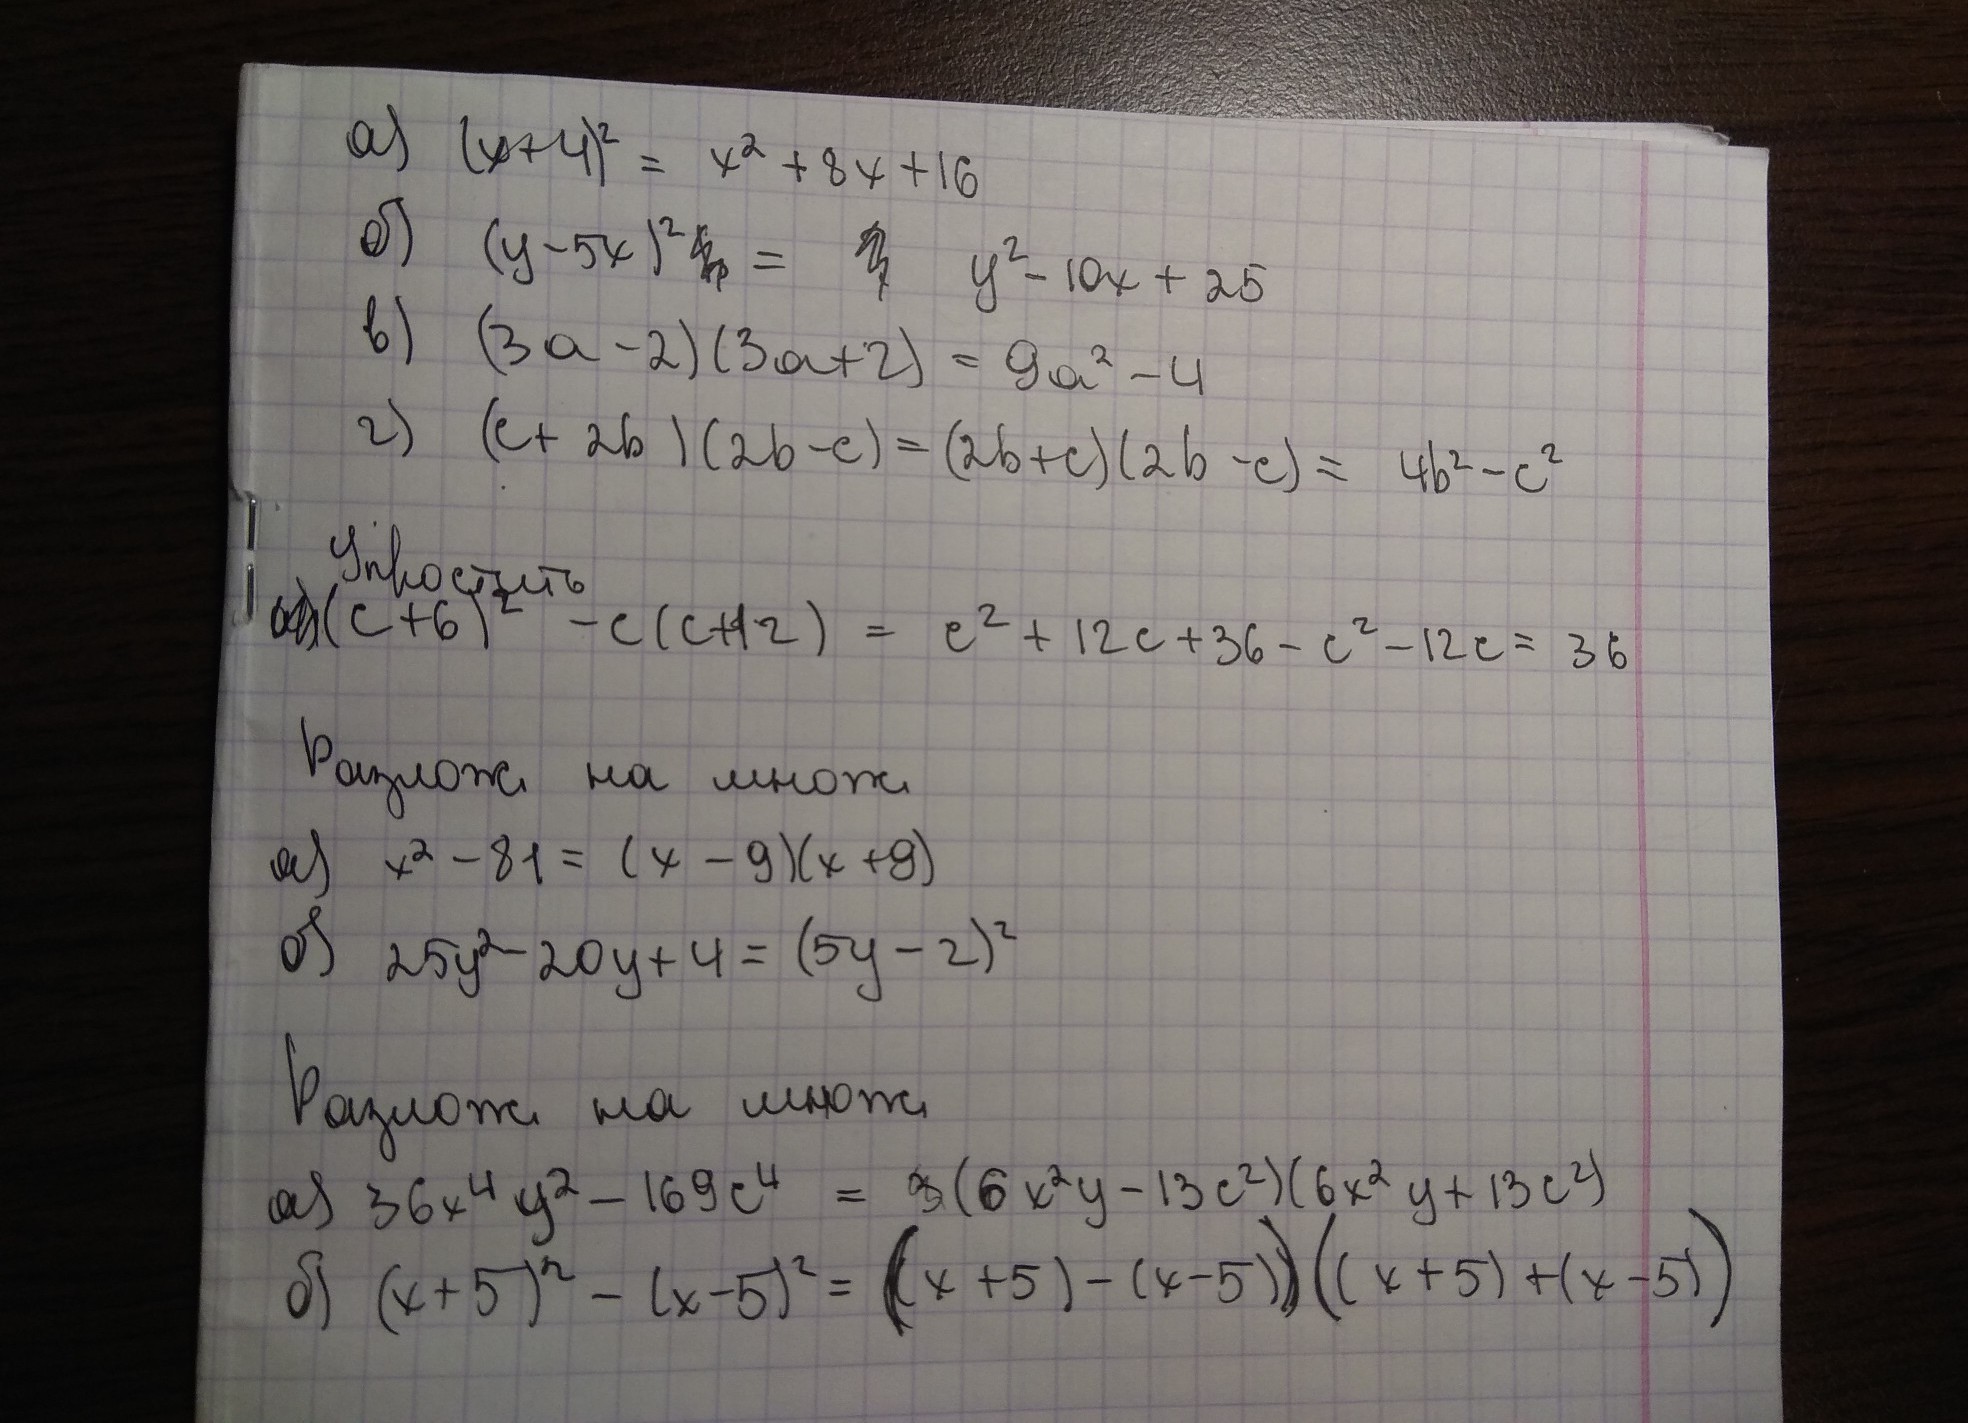 а) (x+4)² = x² + 8x + 16
б) (y-5x)² = y² - 10x + 25
в) (3a - 2)(3a+2) = 9a² - 4
г) (c + 2b)(2b - c) = (2b+c)(2b - c) = 4b² - c²
Упростить
а) (c+6)² - c(c+12) = c² + 12c + 36 - c² - 12c = 36
Разлож на множ
а) x² - 81 = (x - 9)(x + 9)
б) 25y² - 20y + 4 = (5y - 2)²
Разлож на множ
а) 36x⁴y² - 169c⁴ = (6x²y - 13c²)(6x²y + 13c²)
б) (x+5)² - (x-5)² = ((x+5) - (x-5))((x+5) + (x-5))